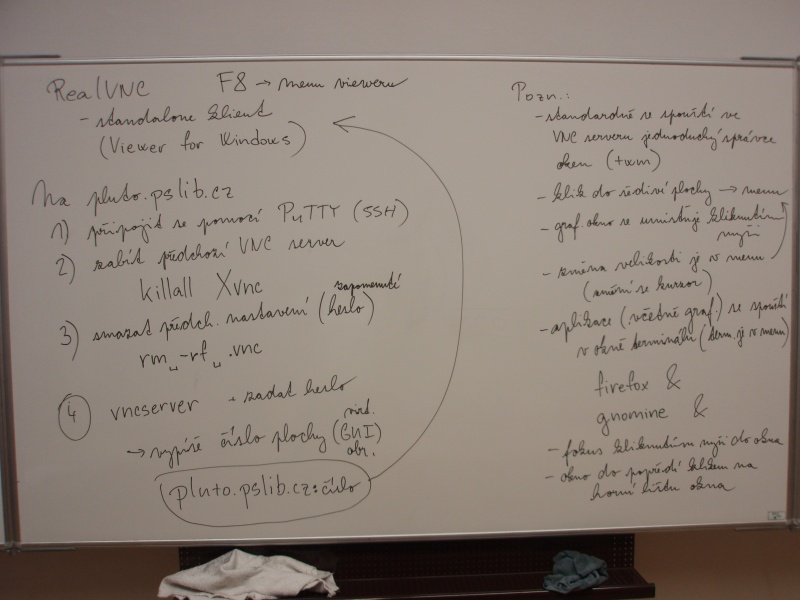 RealVNC F8 → menu vieweru
- standalone klient
(Viewer for Windows)
Na pluto.pslib.cz
1) připojit se pomocí PuTTY (SSH)
2) zabít předchozí VNC server
killall Xvnc
zapomenuté
3) smazat předch. nastavení (heslo)
rm␣-rf␣.vnc
4 vncserver + zadat heslo
virt.
→ vypíše číslo plochy (GUI)
obr.
pluto.pslib.cz:číslo
Pozn.:
- standardně se spouští ve
VNC serveru jednoduchý správce
oken (twm)
- klik do šedivé plochy → menu
- graf. okno se umisťuje kliknutím
myši
- změna velikosti je v menu
(změní se kurzor)
- aplikace (včetně graf.) se spouští
v okně terminálu (term. je v menu)
firefox &
gnomine &
- fokus kliknutím myši do okna
- okno do popředí klikem na
horní lištu okna